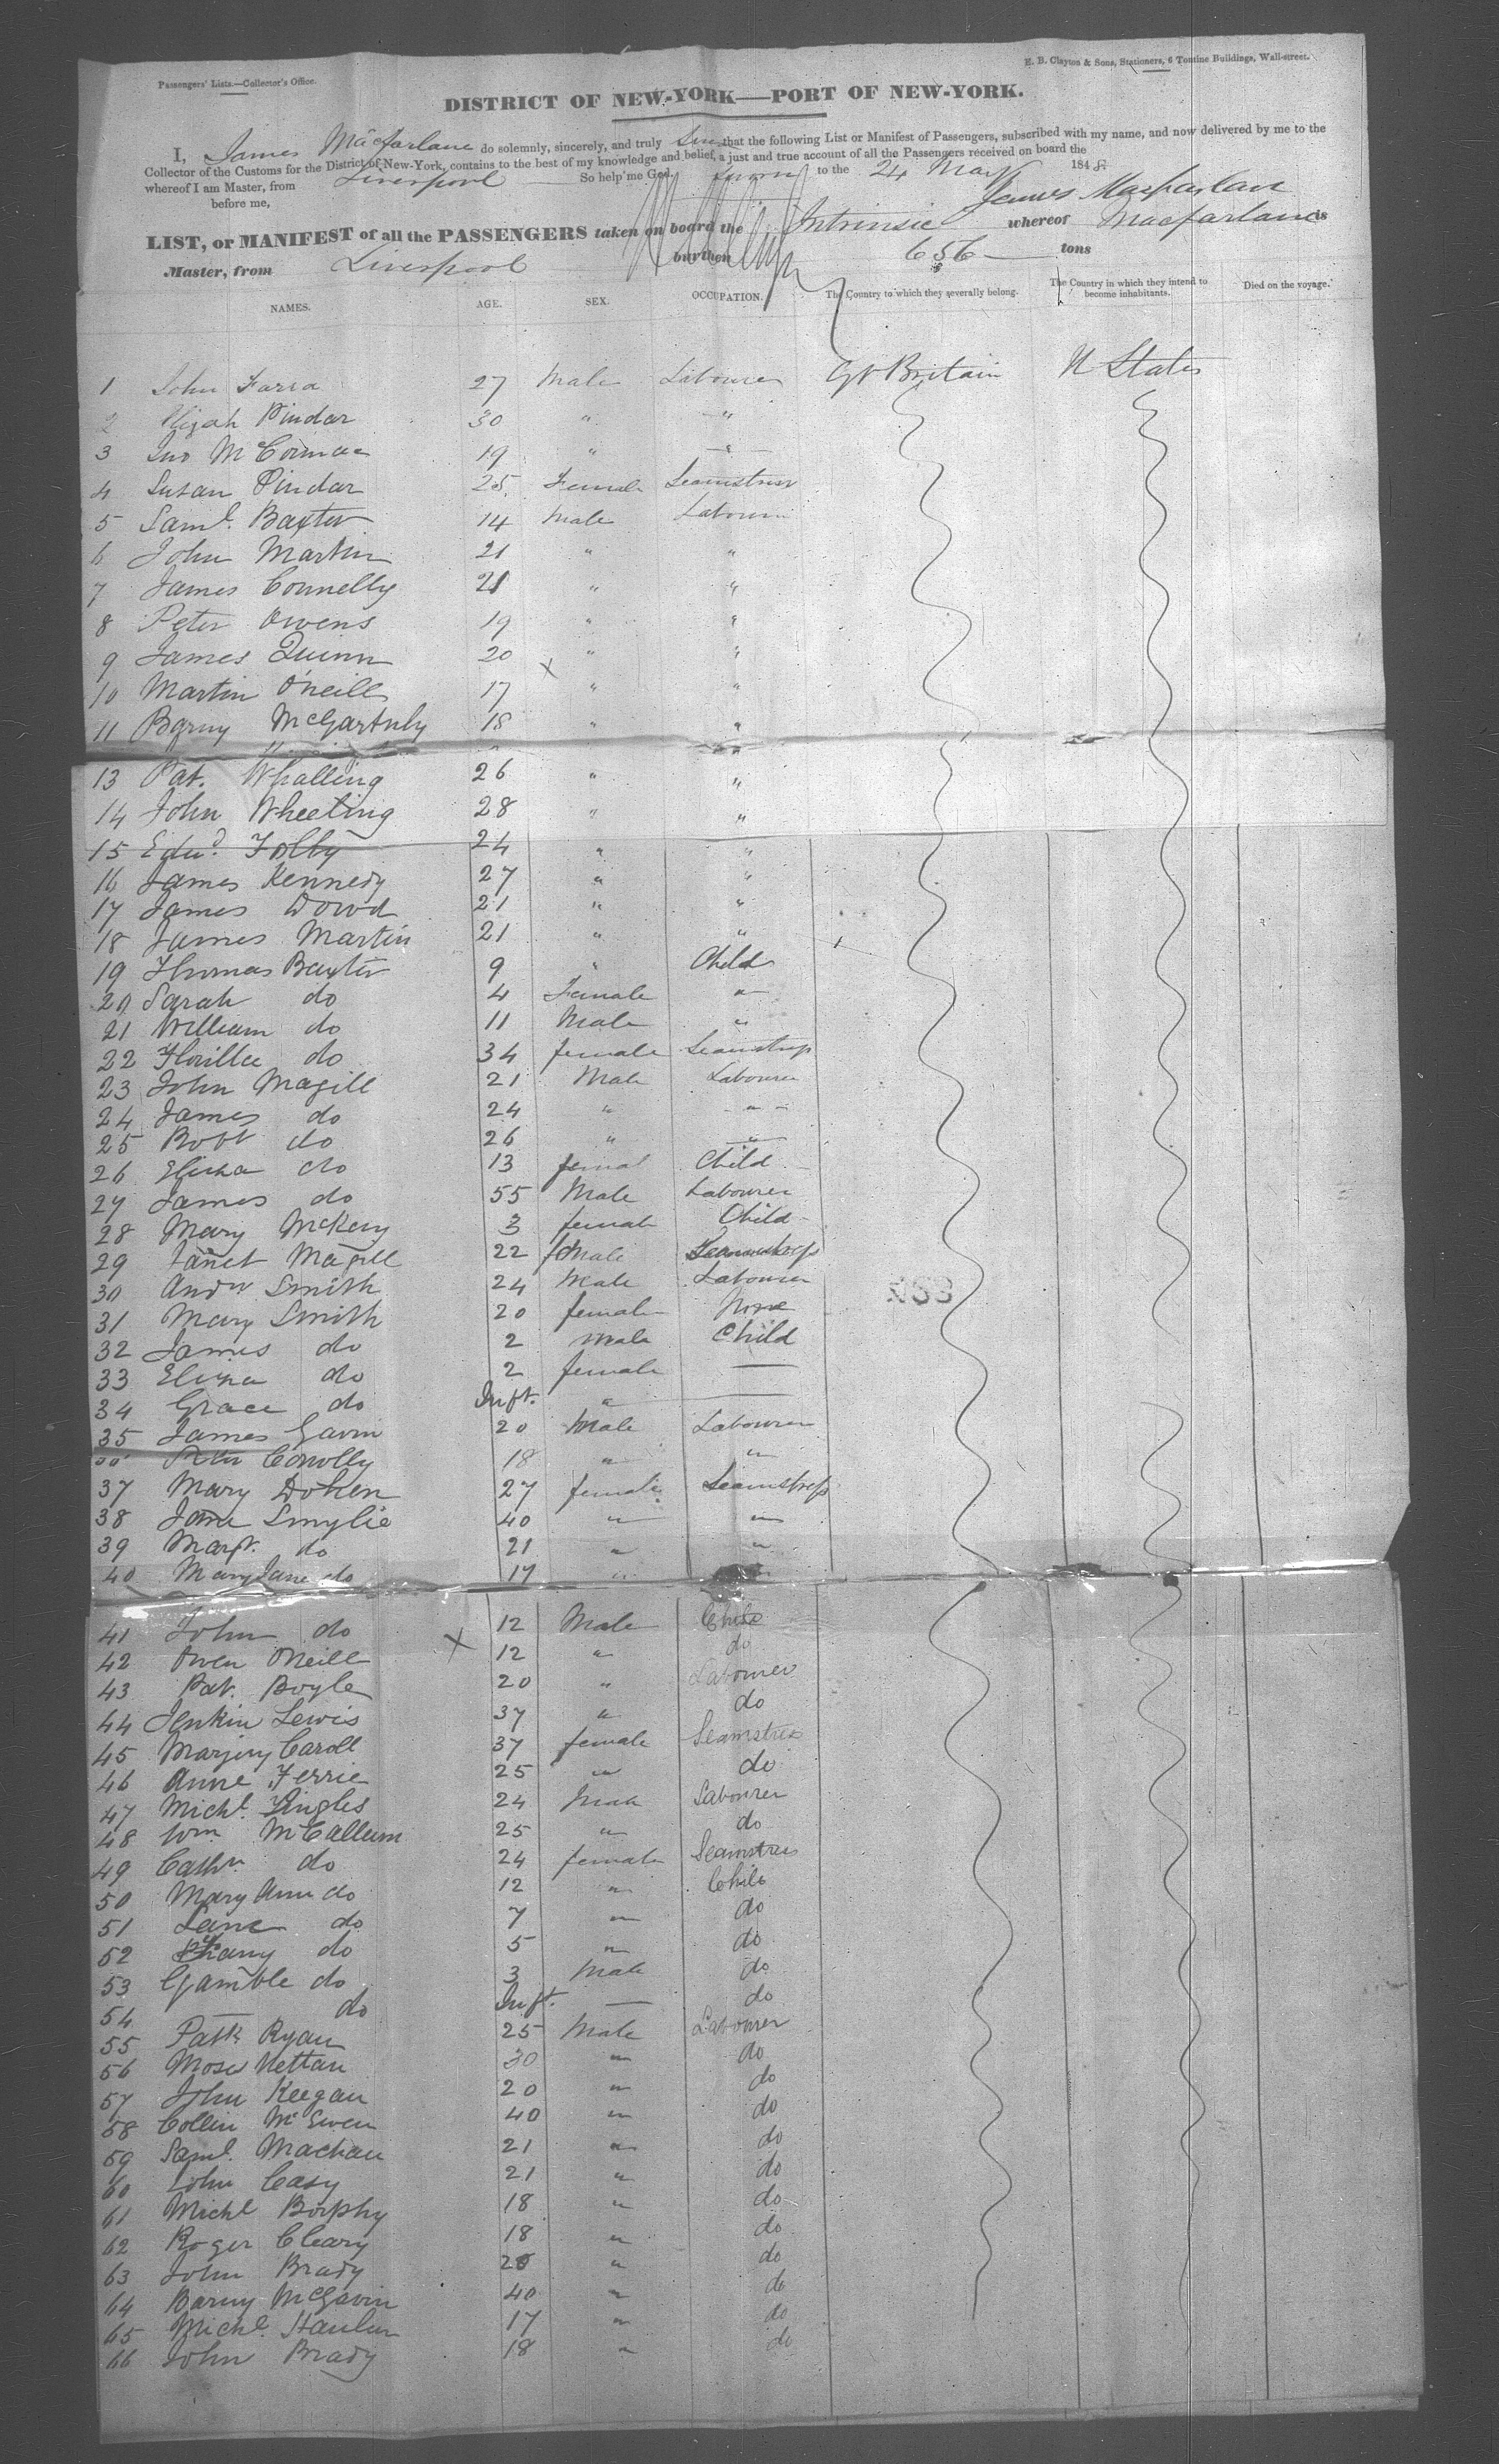 Passengers' Lists.—Collector's Office.
H. B. Clayton & Sons, Stationers, 6 Tontine Buildings, Wall-street.
DISTRICT OF NEW-YORK—PORT OF NEW-YORK.
I, James Macfarlane do solemnly, sincerely, and truly that the following List or Manifest of Passengers, subscribed with my name, and now delivered by me to the
Collector of the Customs for the District of New-York, contains to the best of my knowledge and belief, a just and true account of all the Passengers received on board the
whereof I am Master, from Liverpool So help me God. Sworn to the 24 May 1848
before me, James Macfarlane
LIST, or MANIFEST of all the PASSENGERS taken on board the Intrinsic whereof Macfarlane is
Master, from Liverpool burthen 656 tons
NAMES. AGE. SEX. OCCUPATION. The Country to which they severally belong. The Country in which they intend to become inhabitants. Died on the voyage.
1 John Farra 27 Male Labourer Gt Britain U States
2 Elijah Pindar 30 " "
3 Jno McCormac 19 " "
4 Susan Pindar 25 Female Seamstress
5 Saml. Baxter 14 Male Labourer
6 John Martin 21 " "
7 James Connelly 21 " "
8 Peter Owens 19 " "
9 James Quinn 20 " "
10 Martin O'neill 17 " "
11 Barny 18 " "
13 Pat. Whalling 26 " "
14 John Wheeling 28 " "
15 Edwd. Folby 24 " "
16 James Kennedy 27 " "
17 James Dowd 21 " "
18 James Martin 21 " "
19 Thomas Baxter 9 " Child
20 Sarah do 4 Female "
21 William do 11 Male "
22 do 34 female Seamstress
23 John Magill 21 Male Labourer
24 James do 24 " "
25 Robt do 26 " "
26 Eliza do 13 femal Child
27 James do 55 Male Labourer
28 Mary McKeny 3 female Child
29 Janet Magill 22 female Seamstress
30 Andw Smith 24 Male Labourer
31 Mary Smith 20 female None
32 James do 2 Male Child
33 Eliza do 2 female —
34 Grace do Inft. " —
35 James Gavin 20 Male Labourer
Peter Conolly 18 " "
37 Mary Doken 27 female Seamstress
38 Jane Smylie 40 " "
39 Margt. do 21 " "
40 Mary Jane do 17 " "
41 John do 12 Male Child
42 Owen O'Neill 12 " do
43 Pat. Boyle 20 " Labourer
44 Jenkin Lewis 37 " do
45 Marjery Caroll 37 female Seamstress
46 Anne Ferrie 25 " do
47 Michl. Lingles 24 Male Labourer
48 Wm McCallum 25 " do
49 Cathn do 24 female Seamstress
50 Mary Ann do 12 " Child
51 Jane do 7 " do
52 do 5 " do
53 Gamble do 3 Male do
54 — do Inft. — do
55 Patk Ryan 25 Male Labourer
56 Moses Nettan 30 " do
57 John Keegan 20 " do
58 Collin McEwen 40 " do
59 Saml. Machan 21 " do
60 John Casy 21 " do
61 Michl Borphy 18 " do
62 Roger Cleary 18 " do
63 John Brady 20 " do
64 Barny McGavin 40 " do
65 Michl. Hanlun 17 " do
66 John Brady 18 " do